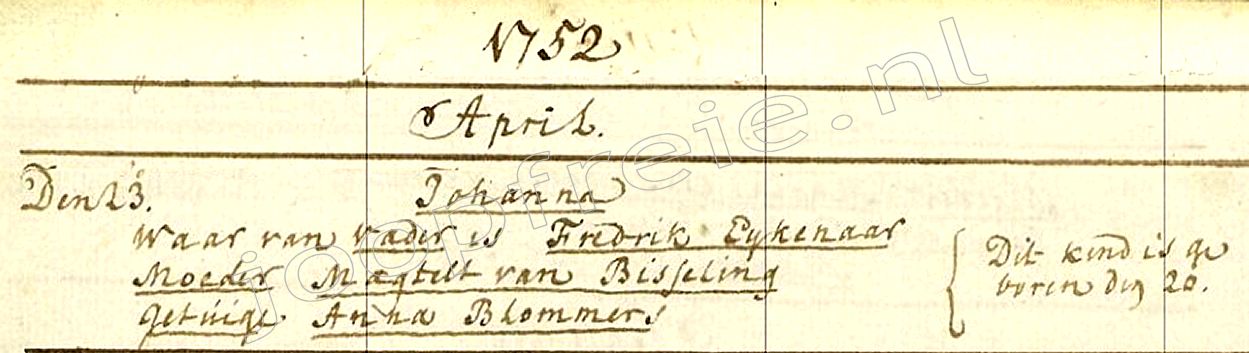 1752
April.
Den 23. Johanna
Waar van vader is Fredrik Eykenaar
Moeder Magtelt van Bisseling
getuige Anna Blommers
Dit kind is ge
boren den 20.
joopfreie.nl